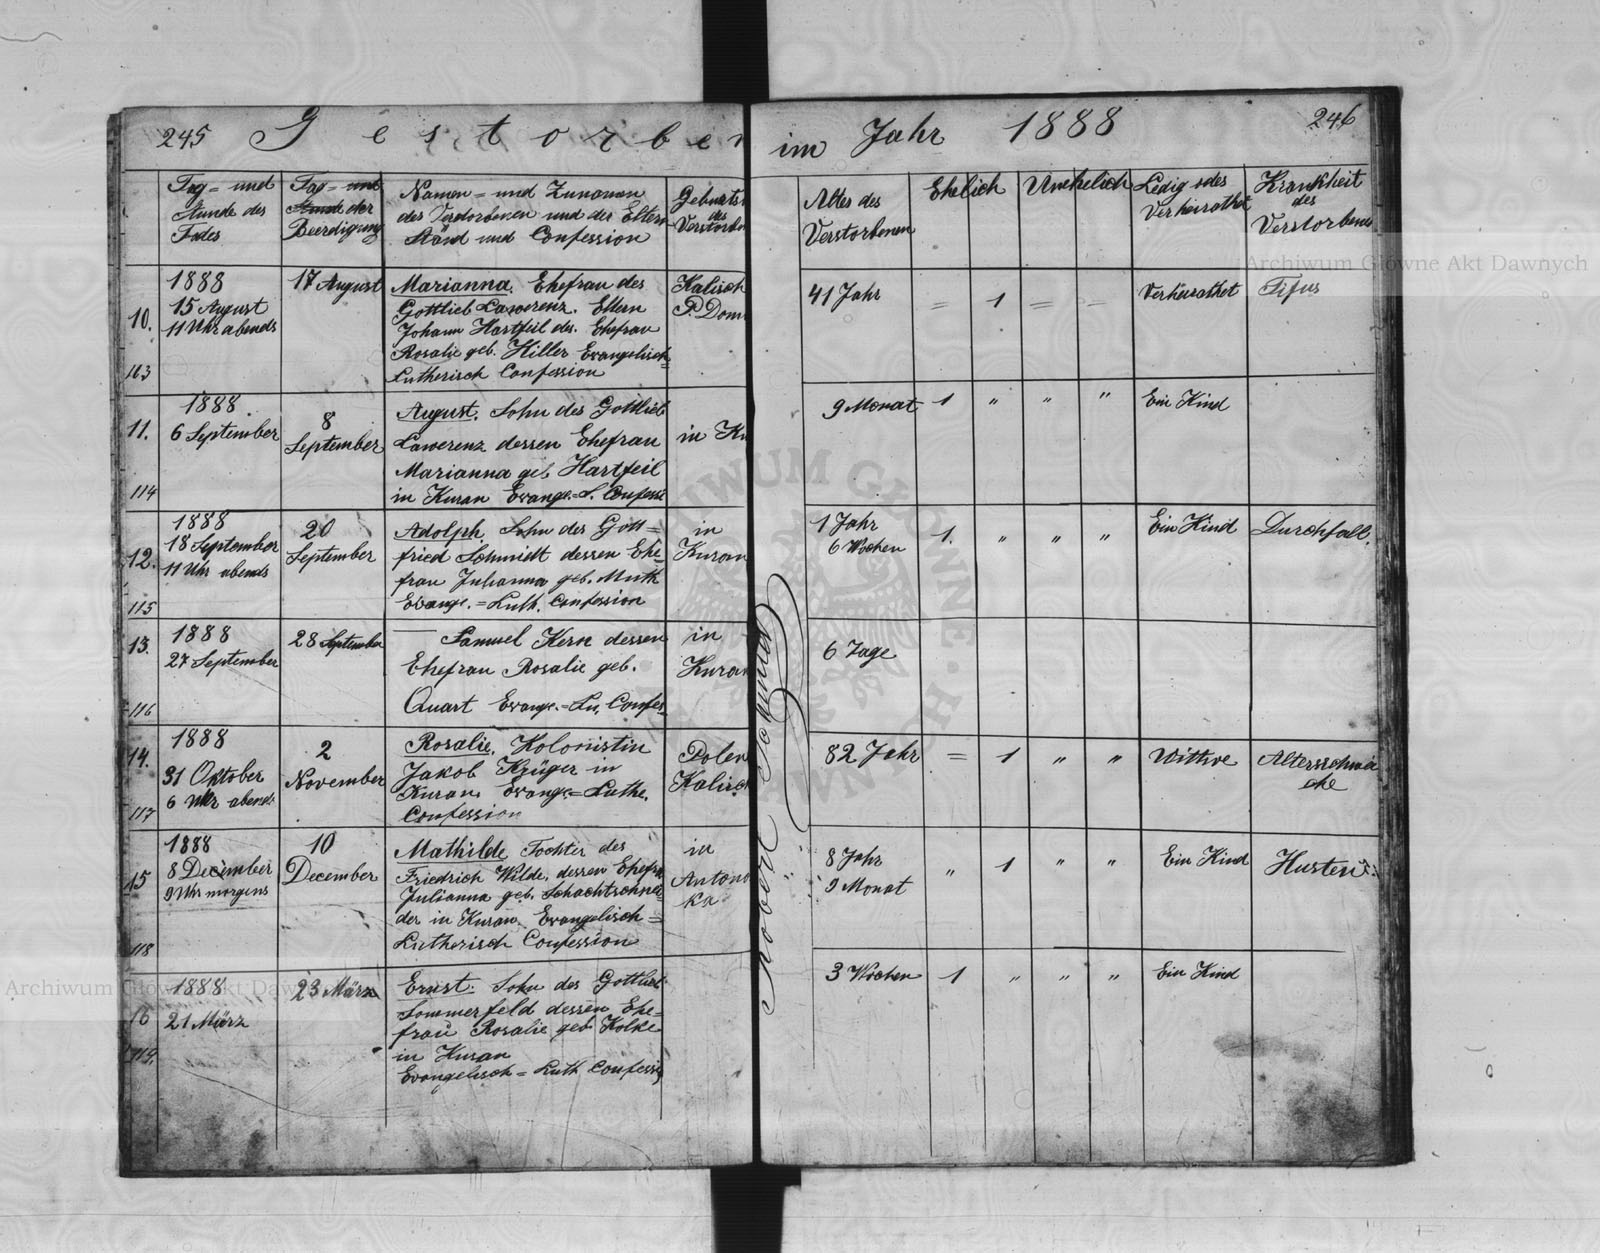 245 Gestorben im Jahr 1888 246
Tag = und
Stunde des
Todes
Tag = und
Stunde der
Beerdigung
Namen = und Zunamen
des Verstorbenen und der Eltern
Stand und Confession
Geburts
des
Verstorben
Alter des
Verstorbenen
Ehelich
Unehelich
Ledig oder
Verheirathet
Krankheit
des
Verstorbenen
10.
103
1888
15 August
11 Uhr abends
17 August
Marianna. Ehefrau des
Gottlieb Lawerenz. Eltern
Johann Hartfeil des. Ehefrau
Rosalie geb. Hiller Evangelisch=
Lutherisch Confession
Kalisch
P. Dom
41 Jahr
= 1 = =
Verheirathet
Tifus
11.
114
1888.
6 September
8
September
August. Sohn des Gottlieb
Lawerenz dessen Ehefrau
Marianna geb Hartfeil
in Kuran Evange.=L. Confess
in Ku
9 Monat
1 " " "
Ein Kind
12.
115
1888
18 September
11 Uhr abends
20
September
Adolph, Sohn des Gott=
fried Schmidt dessen Ehe=
frau Julianna geb. Muth
Evange.=Luth. Confession
in
Kuran
1 Jahr
6 Wochen
1. " " "
Ein Kind
Durchfall.
13.
116
1888
27 September
28 September
Samuel Kern dessen
Ehefrau Rosalie geb.
Quart Evange.=Lu. Confes=
in
Kuran
6 Tage
14.
117
1888
31 Oktober
6 Uhr abends
2
November
Rosalie. Kolonistin
Jakob Krüger in
Kuran. Evange=Luthe.
Confession
Polen
Kalisch
82 Jahr
= 1 " "
Wittwe
Altersschwä
che
15
118
1888
8 December
9 Uhr morgens
10
December
Mathilde Tochter des
Friedrich Wilde, dessen Ehefra
Julianna geb. Schachtschnei=
der in Kuran. Evangelisch=
Lutherisch Confession
in
Antono
ka
8 Jahr
9 Monat
" 1 " "
Ein Kind
Husten
16
119.
1888
21 März
23 März
Ernst. Sohn des Gottlieb
Sommerfeld dessen Ehe=
frau Rosalie geb Kolke
in Kuran
Evangelisch=Luth Confessi
3 Wochen
1 " " "
Ein Kind
Robert Schmidt
Archiwum Główne Akt Dawnych
Archiwum Główne Akt Dawnych